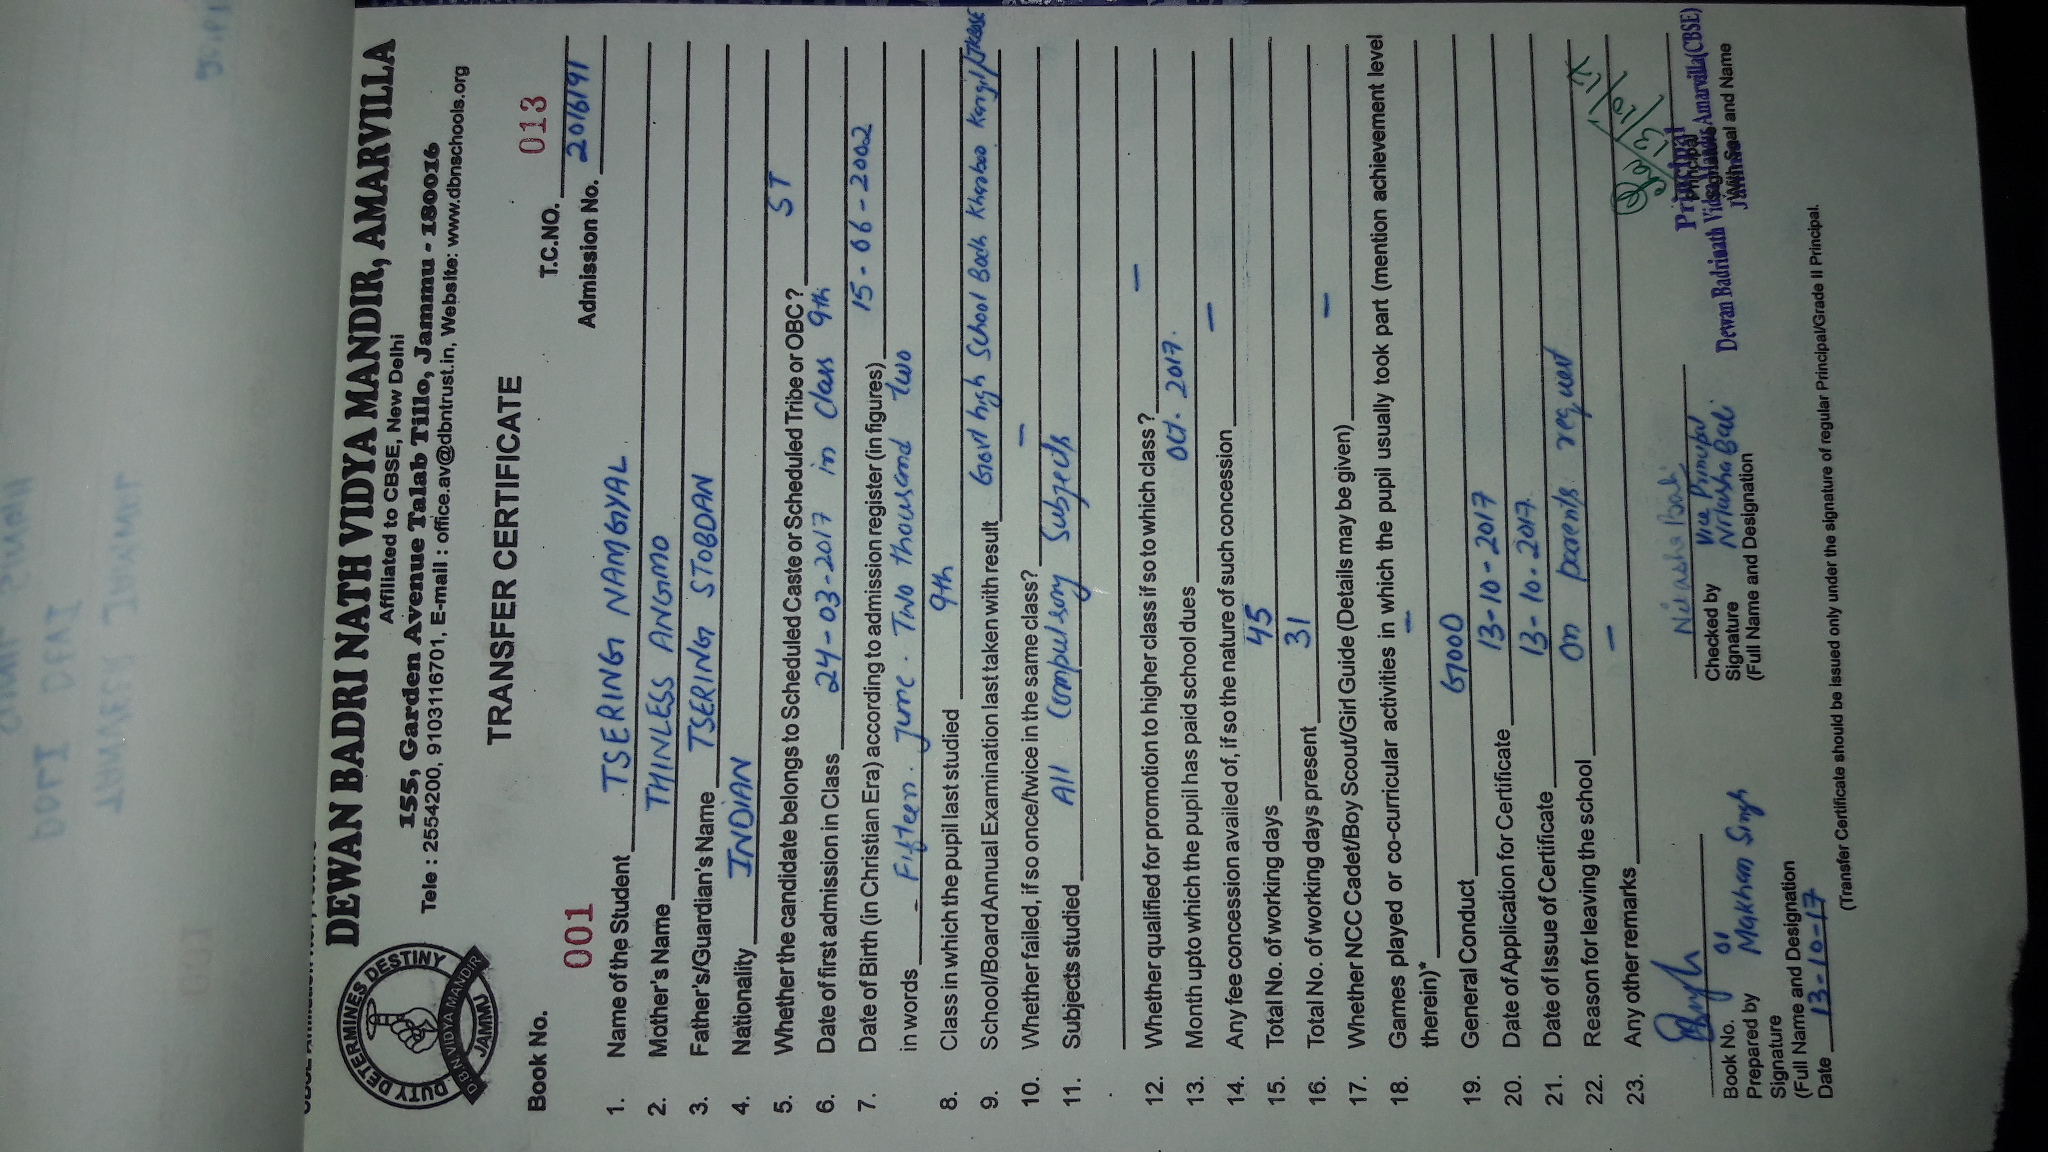 DEWAN BADRI NATH VIDYA MANDIR, AMARVILLA
Affiliated to CBSE, New Delhi
155, Garden Avenue Talab Tillo, Jammu - 180016
Tele : 2554200, 9103116701, E-mail : office.av@dbntrust.in, Website: www.dbnschools.org
DUTY DETERMINES DESTINY
D.B.N VIDYA MANDIR
JAMMU
TRANSFER CERTIFICATE
Book No. 001
T.C.NO. 013
Admission No. 2016191
1. Name of the Student TSERING NAMGYAL
2. Mother's Name THINLESS ANGMO
3. Father's/Guardian's Name TSERING STOBDAN
4. Nationality INDIAN
5. Whether the candidate belongs to Scheduled Caste or Scheduled Tribe or OBC? ST
6. Date of first admission in Class 24-03-2017 in Class 9th
7. Date of Birth (in Christian Era) according to admission register (in figures) 15-06-2002
in words Fifteen. June. Two thousand two
8. Class in which the pupil last studied 9th
9. School/Board Annual Examination last taken with result Govt high School Kargil/JKBSE
10. Whether failed, if so once/twice in the same class? –
11. Subjects studied All Compulsory Subjects
12. Whether qualified for promotion to higher class if so to which class? –
13. Month upto which the pupil has paid school dues Oct. 2017.
14. Any fee concession availed of, if so the nature of such concession –
15. Total No. of working days 45
16. Total No. of working days present 31
17. Whether NCC Cadet/Boy Scout/Girl Guide (Details may be given) –
18. Games played or co-curricular activities in which the pupil usually took part (mention achievement level
therein)* –
19. General Conduct GOOD
20. Date of Application for Certificate 13-10-2017
21. Date of Issue of Certificate 13-10-2017.
22. Reason for leaving the school On parents request
23. Any other remarks –
Book No. 01
Prepared by Makhan Singh
Signature
(Full Name and Designation
Date 13-10-17
Checked by Vice Principal
Signature
(Full Name and Designation
Principal
Dewan Badrinath Vidya Mandir Amarvilla (CBSE)
With Seal and Name
(Transfer Certificate should be issued only under the signature of regular Principal/Grade II Principal.